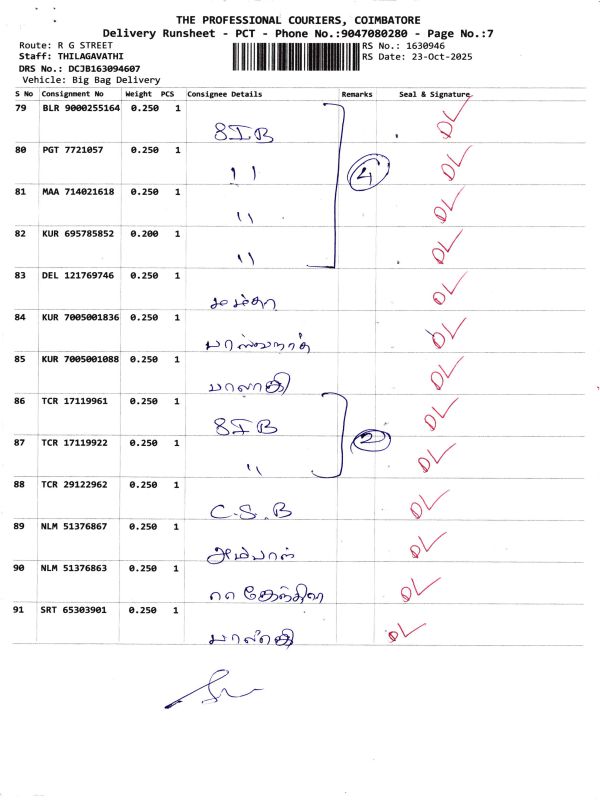 THE PROFESSIONAL COURIERS, COIMBATORE
Delivery Runsheet - PCT - Phone No.:9047080280 - Page No.:7
Route: R G STREET
RS No.: 1630946
Staff: THILAGAVATHI
RS Date: 23-Oct-2025
DRS No.: DCJB163094607
Vehicle: Big Bag Delivery
S No Consignment No Weight PCS Consignee Details Remarks Seal & Signature
79 BLR 9000255164 0.250 1 DL
SIB
80 PGT 7721057 0.250 1 DL
11 4
81 MAA 714021618 0.250 1 DL
11
82 KUR 695785852 0.200 1 DL
11
83 DEL 121769746 0.250 1 DL
84 KUR 7005001836 0.250 1 DL
85 KUR 7005001088 0.250 1 DL
பாலாஜி
86 TCR 17119961 0.250 1 DL
SIB
87 TCR 17119922 0.250 1 DL
11 2
88 TCR 29122962 0.250 1 DL
C.S.B
89 NLM 51376867 0.250 1 DL
அம்பாள்
90 NLM 51376863 0.250 1 DL
91 SRT 65303901 0.250 1 DL